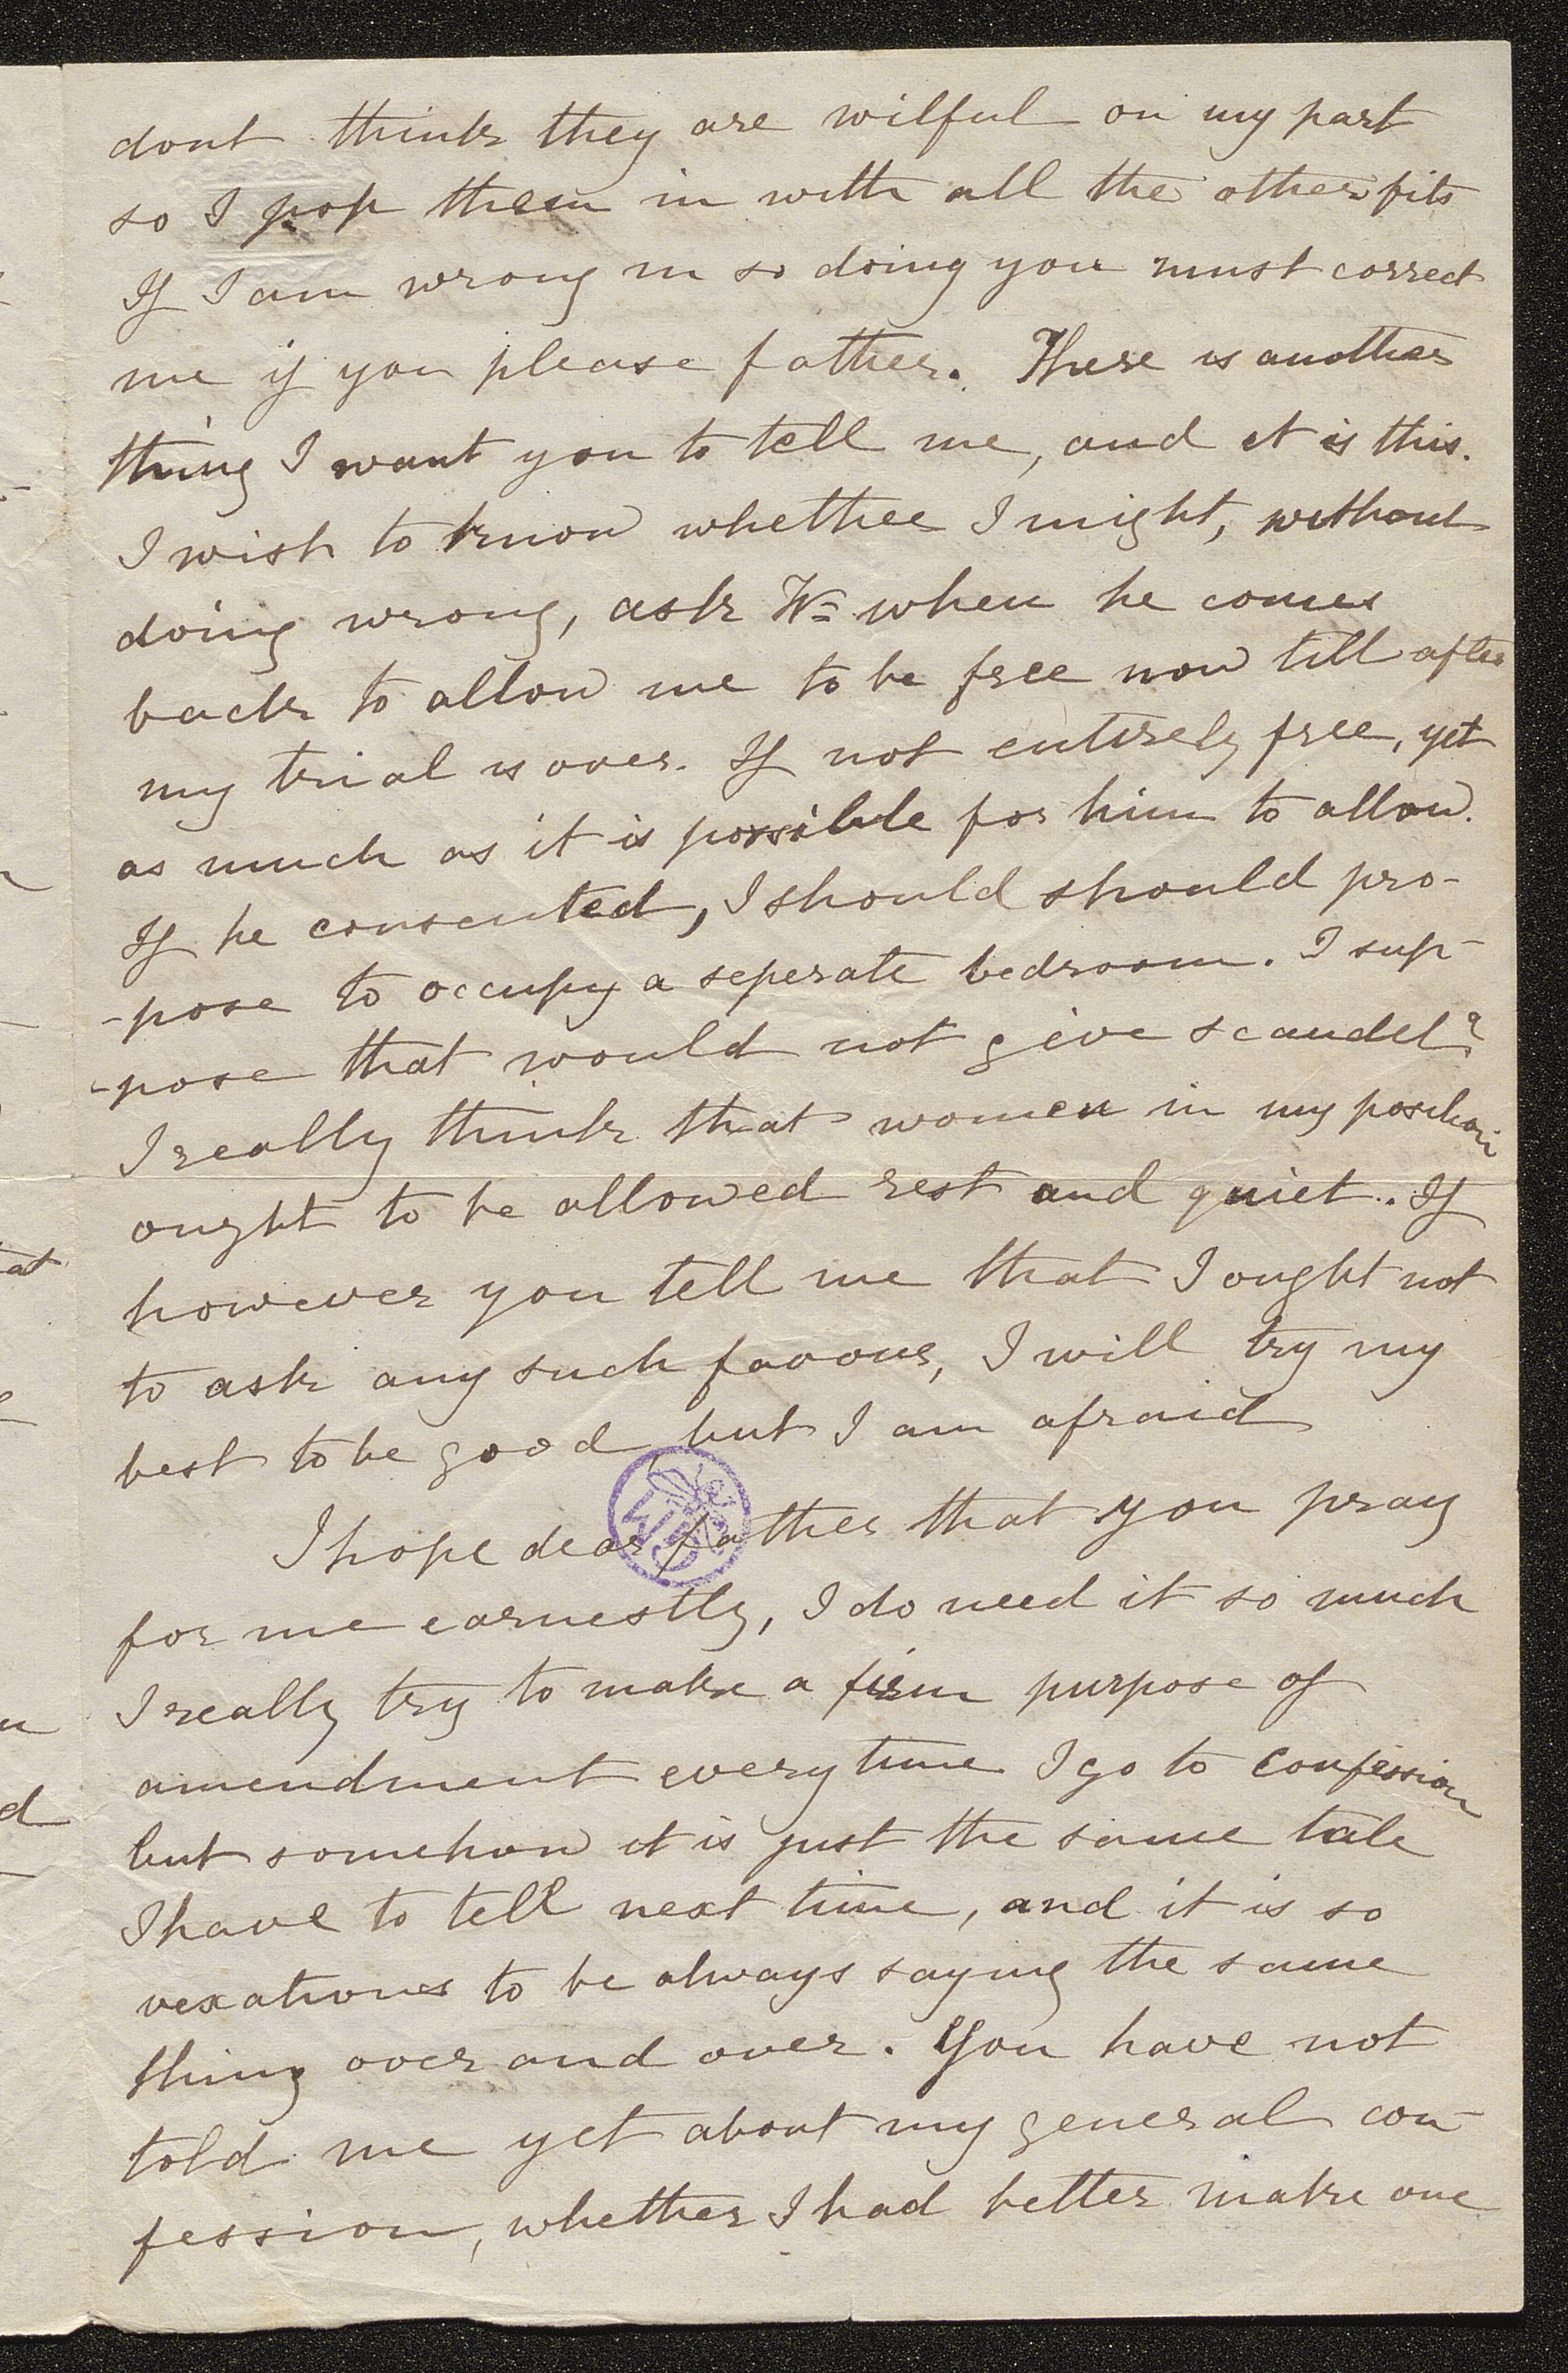 dont think they are wilful on my part
so I pop them in with all the other fits
If I am wrong in so doing you must correct
me if you please father. There is another
thing I want you to tell me, and it is this.
I wish to know whether I might, without
doing wrong, ask Wm when he comes
back to allow me to be free now till after
my trial is over. If not entirely free, yet
as much as it is possible for him to allow.
If he consented, I should should pro-
-pose to occupy a seperate bedroom. I sup-
-pose that would not give scandel?
I really think that women in my position
ought to be allowed rest and quiet. If
however you tell me that I ought not
to ask any such favour, I will try my
best to be good, but I am afraid
I hope dear father that you pray
for me earnestly, I do need it so much
I really try to make a firm purpose of
amendment every time I go to confession
but somehow it is just the same tale
I have to tell next time, and it is so
vexatious to be always saying the same
thing over and over. You have not
told me yet about my general con-
fession, whether I had better make one
at
d